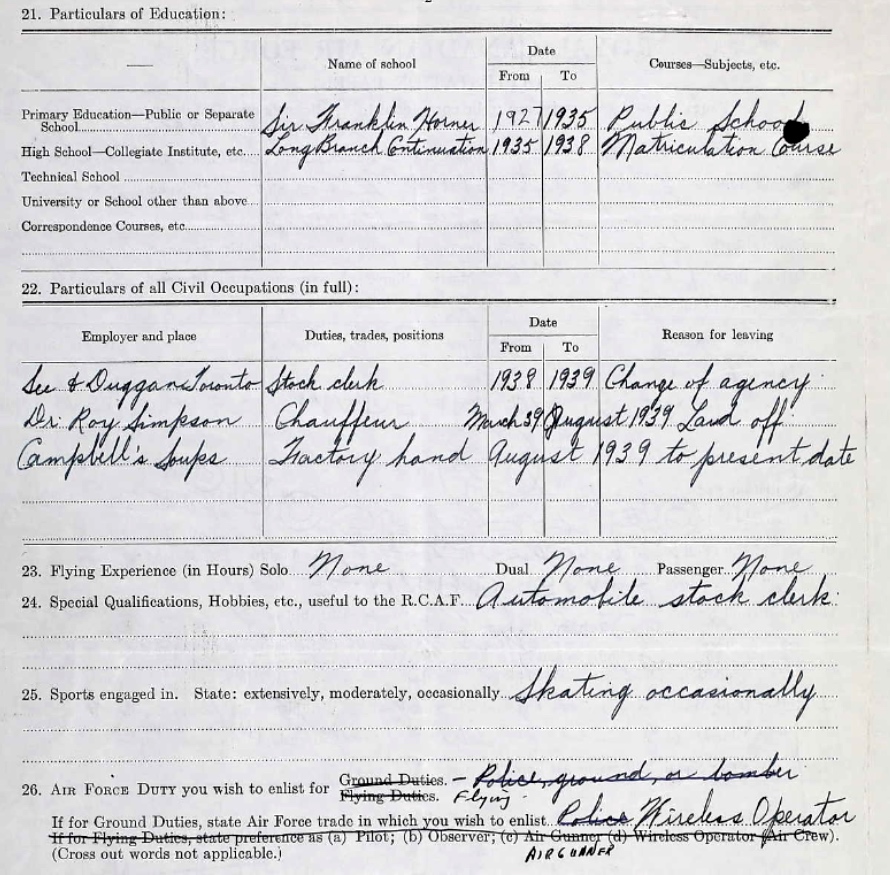 21. Particulars of Education:
Name of school
Date
From To
Courses—Subjects, etc.
Primary Education—Public or Separate School Sir Franklin Horner 1927 1935 Public School
High School—Collegiate Institute, etc. Long Branch Continuation 1935 1938 Matriculation Course
Technical School
University or School other than above
Correspondence Courses, etc.
22. Particulars of all Civil Occupations (in full):
Employer and place
Duties, trades, positions
Date
From To
Reason for leaving
See & Duggan Toronto Stock clerk 1938 1939 Change of agency
Dr. Roy Simpson Chauffeur March 39 August 1939 Laid off
Campbell's Soups Factory hand August 1939 to present date
23. Flying Experience (in Hours) Solo None Dual None Passenger None
24. Special Qualifications, Hobbies, etc., useful to the R.C.A.F. Automobile stock clerk
25. Sports engaged in. State: extensively, moderately, occasionally Skating occasionally
26. AIR FORCE DUTY you wish to enlist for Ground Duties. – Police, ground, or bomber
Flying Duties. Flying
If for Ground Duties, state Air Force trade in which you wish to enlist Police Wireless Operator
If for Flying Duties, state preference as (a) Pilot; (b) Observer; (c) Air Gunner (d) Wireless Operator (Air Crew).
(Cross out words not applicable.) AIR GUNNER